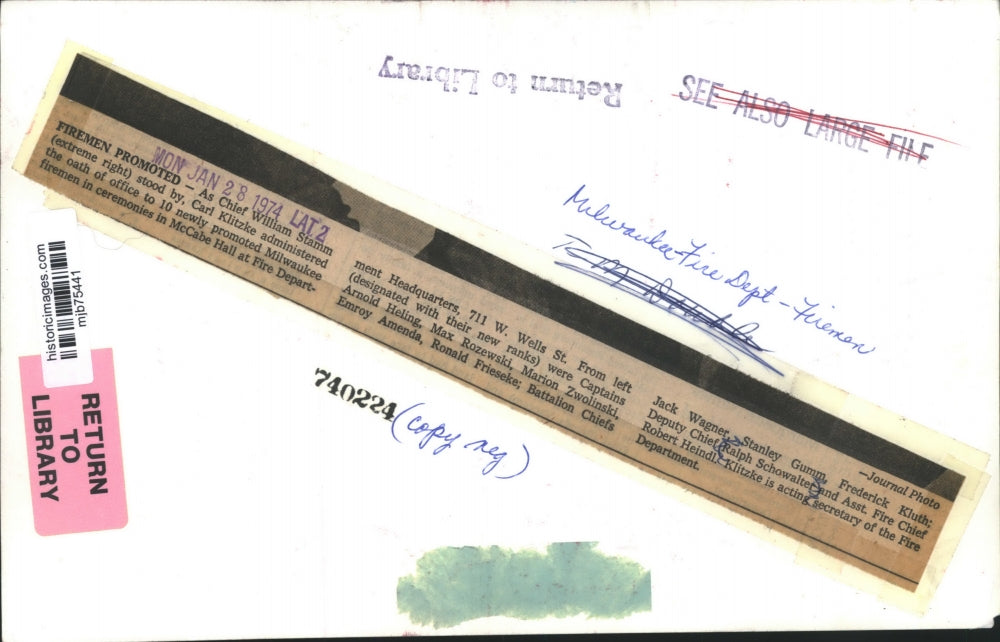 Return to Library
SEE ALSO LARGE FILE
Milwaukee-Fire Dept - Firemen
FIREMEN PROMOTED — As Chief William Stamm
(extreme right) stood by, Carl Klitzke administered
the oath of office to 10 newly promoted Milwaukee
firemen in ceremonies in McCabe Hall at Fire Depart-
MON JAN 28 1974 LAT 2
ment Headquarters, 711 W. Wells St. From left
(designated with their new ranks) were Captains
Arnold Heling, Max Rozewski, Marion Zwolinski,
Emroy Amenda, Ronald Frieseke; Battalion Chiefs
Jack Wagner, Stanley Gumm, Frederick Kluth;
Deputy Chief Ralph Schowalter and Asst. Fire Chief
Robert Heindl. Klitzke is acting secretary of the Fire
Department.
—Journal Photo
historicimages.com
mjb75441
RETURN
TO
LIBRARY
740224
(copy neg)